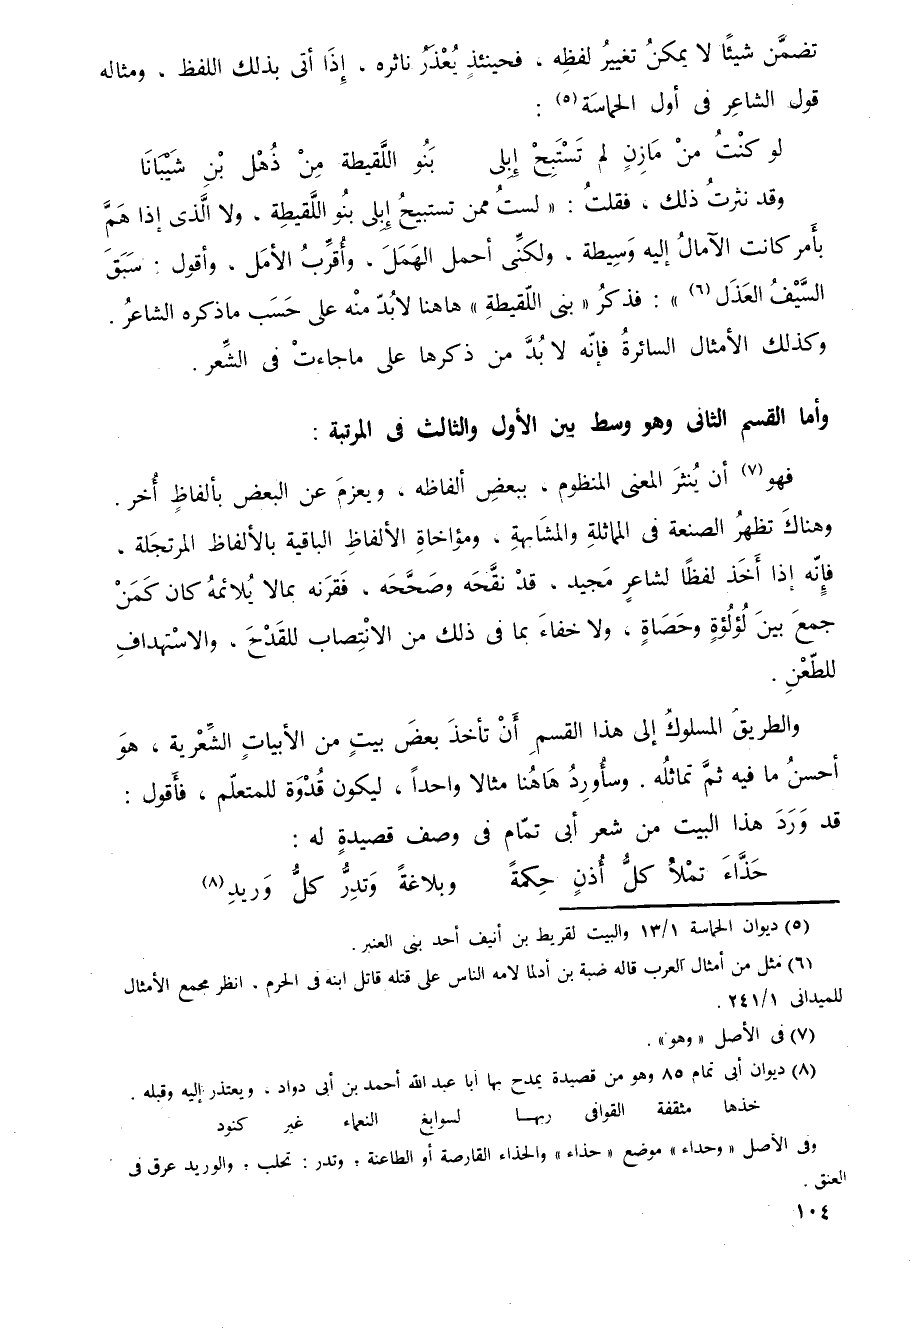 تضمَّن شيئًا لا يمكنُ تغييرُ لفظِه ، فحينئذٍ يُعْذَرُ ناثره ، إِذَا أتى بذلك اللفظ ، ومثاله
قول الشاعِرِ فى أول الحماسَة (٥) :
لو كنْتُ منْ مَازِنٍ لم تَسْتَبِحْ إِبِلى بَنُو اللَّقيطة مِنْ ذُهْل بْنِ شَيْبَانَا
وقد نثرتُ ذلك ، فقلتُ : « لستُ ممن تستبيحُ إِبلى بنُو اللَّقيطةِ ، ولا الَّذى إذا هَمَّ
بأَمر كانت الآمالُ إليه وَسِيطة ، ولكنِّى أحمل الهَمَلَ ، وأُقرِّبُ الأمَل ، وأقول : سَبَقَ
السَّيْفُ العَذَل (٦) » : فذكرُ « بنى اللّقيطةِ » هاهنا لابُدّ منْه على حَسَب ماذكره الشاعرُ .
وكذلك الأمثال السائرةُ فإنّه لا بُدَّ من ذكرها على ماجاءتْ فى الشِّعر .
وأما القسم الثانى وهو وسط بين الأول والثالث فى المرتبة :
فهو (٧) أن يُنثرَ المعنى المنظوم ، ببعضِ ألفاظه ، ويعزمَ عن البعض بألفاظٍ أُخر .
وهناكَ تظهرُ الصنعة فى المماثلةِ والمشَابهةِ ، ومؤاخاةِ الألفاظِ الباقية بالألفاظ المرتجَلة ،
فإِنّه إذا أَخَذ لفظًا لشاعرٍ مَجيد ، قدْ نقَّحَه وصَحَّحَه ، فَقرَنه بمالا يُلائمهُ كان كَمَنْ
جمعَ بينَ لُؤلُؤةٍ وحَصَاةٍ ، ولا خفاءَ بما فى ذلك من الانْتِصاب للقَدْحَ ، والاسْتِهدافِ
للطّعْنِ .
والطريقُ المسلوكُ إلى هذا القسمِ أَنْ تأخذَ بعضَ بيتٍ من الأبياتِ الشِّعْرية ، هوَ
أحسنُ ما فيه ثمَّ تماثلُه . وسأُورِدُ هَاهُنا مثالا واحداً ، ليكون قُدْوَة للمتعلّم ، فأَقول :
قد وَرَدَ هذا البيت من شعر أبى تمّام فى وصف قصيدةٍ له :
حَذَّاءَ تمْلأُ كلُّ أُذنٍ حِكمةً وبلاغةً وَتدِرُّ كلُّ وَريدِ (٨)
(٥) ديوان الحماسة ١٣/١ والبيت لقريط بن أنيف أحد بنى العنبر .
(٦) مثل من أمثال العرب قاله ضبة بن أدلما لامه الناس على قتله قاتل ابنه فى الحرم . انظر مجمع الأمثال
للميدانى ٢٤١/١ .
(٧) فى الأصل « وهو » .
(٨) ديوان أبى تمام ٨٥ وهو من قصيدة يمدح بها أبا عبد الله أحمد بن أبى دواد ، ويعتذر إليه وقبله .
خذها مثقفة القوافى ربهـا لسوابغ النعماء غير كنود
وفى الأصل « وحداء » موضع « حذاء » والحذاء القارصة أو الطاعنة ؛ وتدر : تحلب ؛ والوريد عرق فى
العنق .
١٠٤